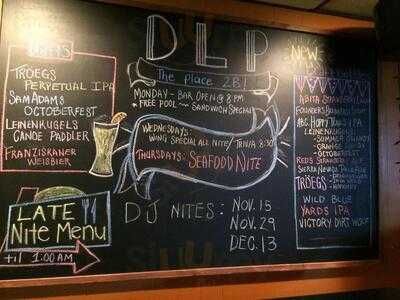 DRAFTS
TROEGS
PERPETUAL IPA
SAM ADAMS
OCTOBERFEST
LEINENKUGELS
CANOE PADDLER
FRANZISKANER
WEISSBIER
LATE
NITE MENU
til 1:00 AM
DLP
The Place 2B!
MONDAY - BAR OPEN @ 8 PM
* FREE POOL ~ SANDWICH SPECIALS
WEDNESDAYS:
WING SPECIAL ALL NITE / TRIVIA 8:30
THURSDAYS: SEAFOOD NITE
DJ NITES: NOV. 15
NOV. 29
DEC. 13
NEW
ABITA STRAWBERRY
FOUNDERS
ABC HOPPY IPA
LEINENKUGELS
- SUMMER SHANDY
- ORANGE
- OCTOBERFEST
REDS
SIERRA NEVADA PALE ALE
TRÖEGS
WILD BLUE
YARDS IPA
VICTORY DIRT WOLF